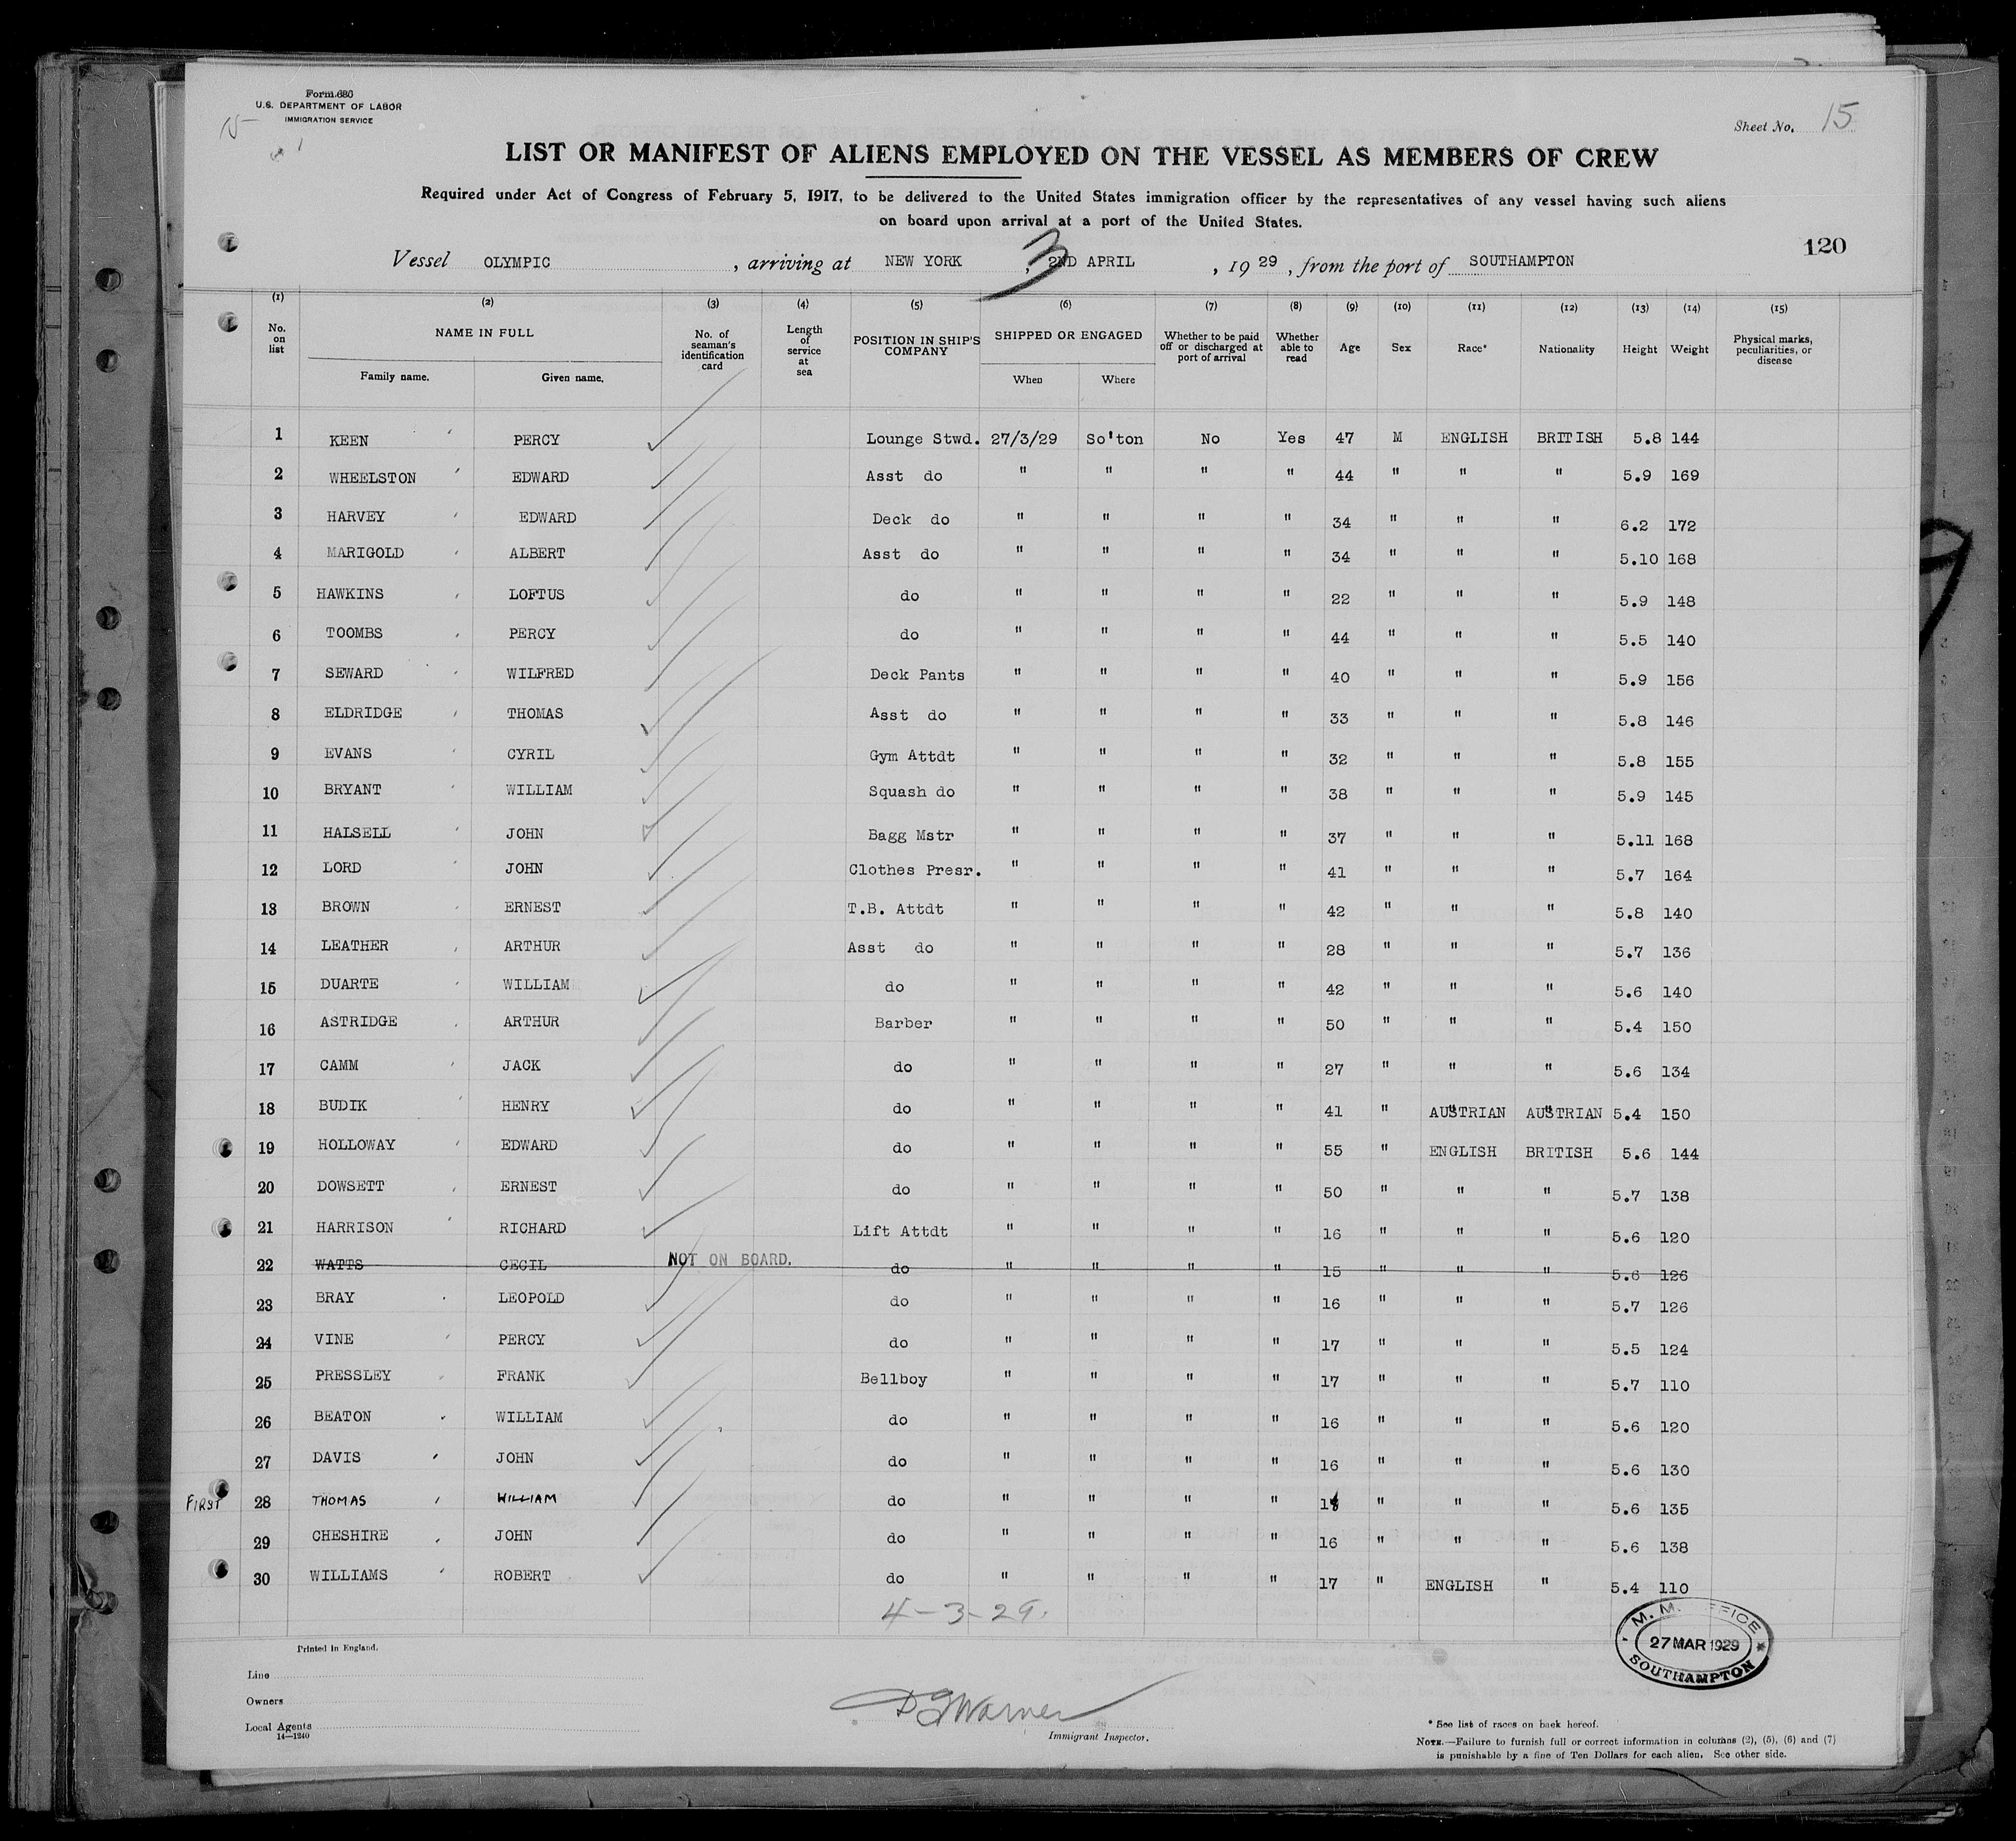 Form 686
U.S. DEPARTMENT OF LABOR
IMMIGRATION SERVICE
15
Sheet No. 15
LIST OR MANIFEST OF ALIENS EMPLOYED ON THE VESSEL AS MEMBERS OF CREW
Required under Act of Congress of February 5, 1917, to be delivered to the United States immigration officer by the representatives of any vessel having such aliens
on board upon arrival at a port of the United States.
120
Vessel OLYMPIC, arriving at NEW YORK, 3 2ND APRIL, 1929, from the port of SOUTHAMPTON
(1) (2) (3) (4) (5) (6) (7) (8) (9) (10) (11) (12) (13) (14) (15)
No. on list NAME IN FULL Family name. Given name. No. of seaman's identification card Length of service at sea POSITION IN SHIP'S COMPANY SHIPPED OR ENGAGED When Where Whether to be paid off or discharged at port of arrival Whether able to read Age Sex Race* Nationality Height Weight Physical marks, peculiarities, or disease
1 KEEN PERCY Lounge Stwd. 27/3/29 So'ton No Yes 47 M ENGLISH BRITISH 5.8 144
2 WHEELSTON EDWARD Asst do " " " " 44 " " " 5.9 169
3 HARVEY EDWARD Deck do " " " " 34 " " " 6.2 172
4 MARIGOLD ALBERT Asst do " " " " 34 " " " 5.10 168
5 HAWKINS LOFTUS do " " " " 22 " " " 5.9 148
6 TOOMBS PERCY do " " " " 44 " " " 5.5 140
7 SEWARD WILFRED Deck Pants " " " " 40 " " " 5.9 156
8 ELDRIDGE THOMAS Asst do " " " " 33 " " " 5.8 146
9 EVANS CYRIL Gym Attdt " " " " 32 " " " 5.8 155
10 BRYANT WILLIAM Squash do " " " " 38 " " " 5.9 145
11 HALSELL JOHN Bagg Mstr " " " " 37 " " " 5.11 168
12 LORD JOHN Clothes Presr. " " " " 41 " " " 5.7 164
13 BROWN ERNEST T.B. Attdt " " " " 42 " " " 5.8 140
14 LEATHER ARTHUR Asst do " " " " 28 " " " 5.7 136
15 DUARTE WILLIAM do " " " " 42 " " " 5.6 140
16 ASTRIDGE ARTHUR Barber " " " " 50 " " " 5.4 150
17 CAMM JACK do " " " " 27 " " " 5.6 134
18 BUDIK HENRY do " " " " 41 " AUSTRIAN AUSTRIAN 5.4 150
19 HOLLOWAY EDWARD do " " " " 55 " ENGLISH BRITISH 5.6 144
20 DOWSETT ERNEST do " " " " 50 " " " 5.7 138
21 HARRISON RICHARD Lift Attdt " " " " 16 " " " 5.6 120
22 WATTS CECIL NOT ON BOARD. do " " " " 15 " " " 5.6 126
23 BRAY LEOPOLD do " " " " 16 " " " 5.7 126
24 VINE PERCY do " " " " 17 " " " 5.5 124
25 PRESSLEY FRANK Bellboy " " " " 17 " " " 5.7 110
26 BEATON WILLIAM do " " " " 16 " " " 5.6 120
27 DAVIS JOHN do " " " " 16 " " " 5.6 130
FIRST 28 THOMAS WILLIAM do " " " " " " " 5.6 135
29 CHESHIRE JOHN do " " " " 16 " " " 5.6 138
30 WILLIAMS ROBERT do " " " " 17 " ENGLISH " 5.4 110
4-3-29.
M. M. OFFICE
27 MAR 1929
SOUTHAMPTON
Printed in England.
Line
Owners
Local Agents
14-1240
D G Warner
Immigrant Inspector.
* See list of races on back hereof.
NOTE.—Failure to furnish full or correct information in columns (2), (5), (6) and (7)
is punishable by a fine of Ten Dollars for each alien. See other side.